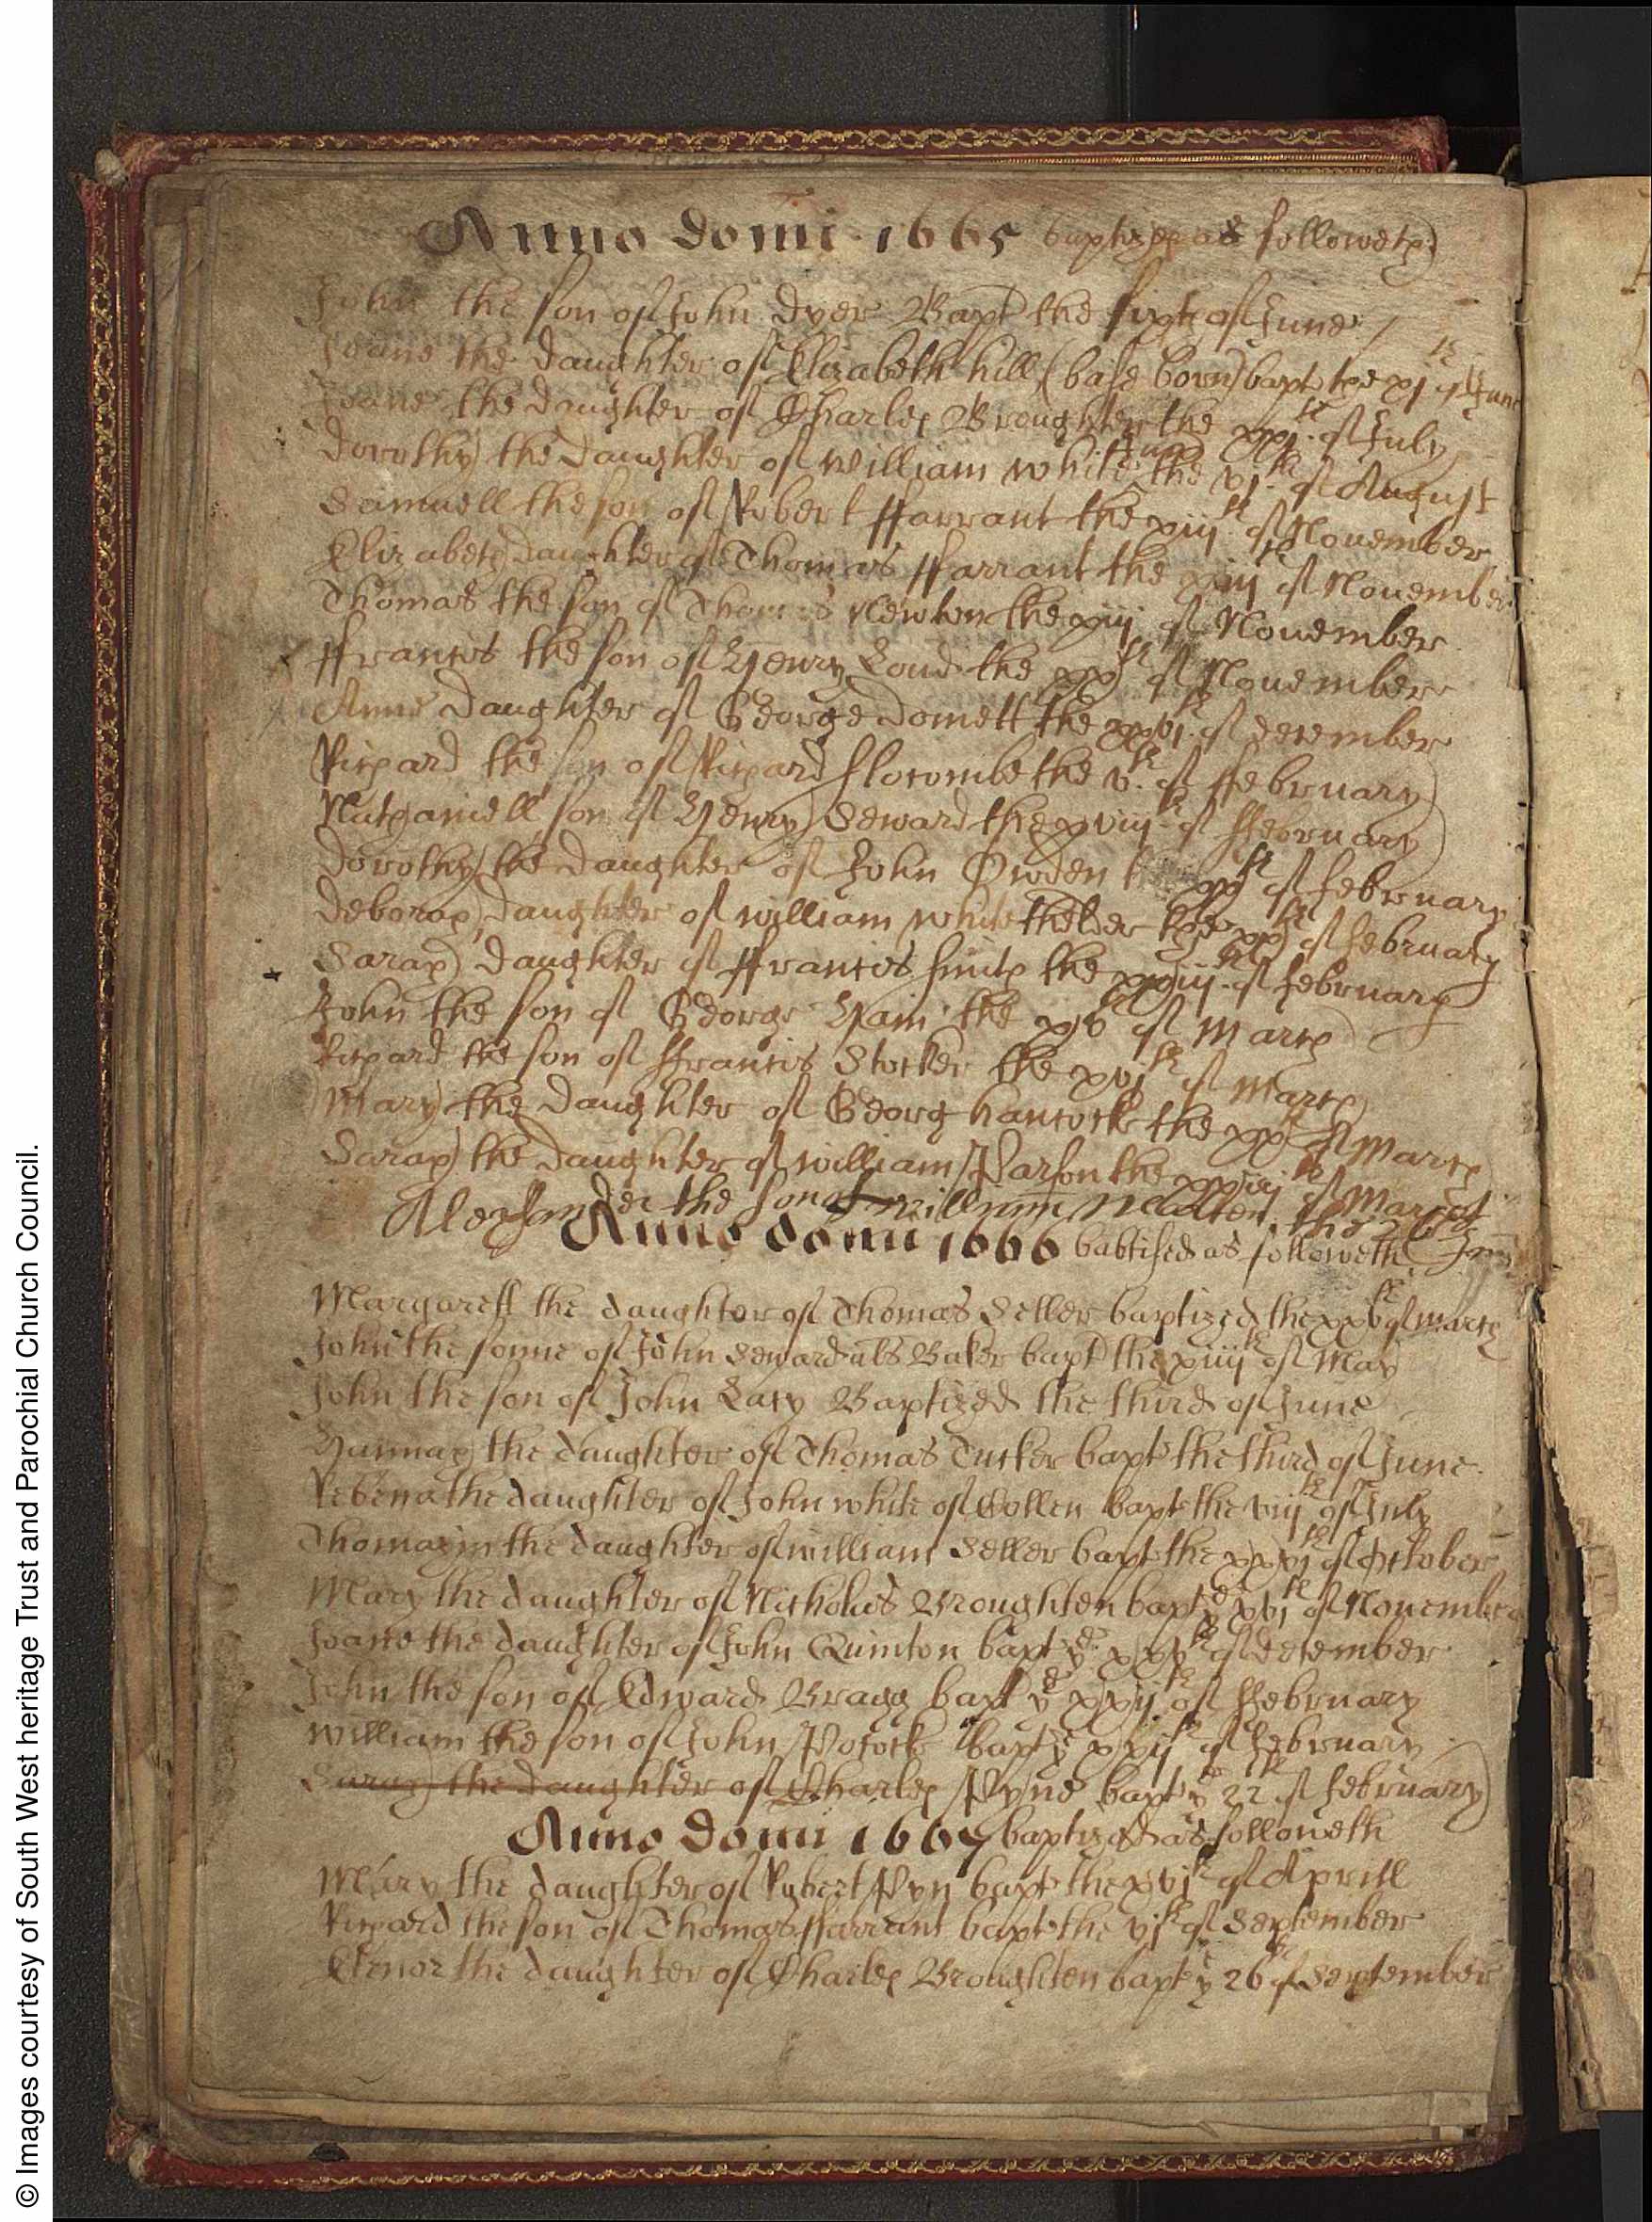 Anno domi 1665 baptized as followeth
John the son of John Dyer Bapt the sixth of June
Joane the daughter of Elizabeth hill (base born) bapt the xj th of June
Joane the daughter of Charles Broughten the xxj th of July
Dorothy the daughter of William White the vj th of August
Samuell the son of Robert ffarrant the xiij th of November
Elizabeth daughter of Thomas ffarrant the xiij th of November
Thomas the son of Thomas Newton the xiij of November
ffrancis the son of Henry Loud the xx th of November
Anne Daughter of George Domett the xxvj th of december
Richard the son of Richard slocombe the v th of ffebruary
Nathaniell son of Henry Seward the xviij th of ffebruary
Dorothy the daughter of John Owden xx th of february
Deborah daughter of William White thelder the xx th of february
Sarah daughter of ffrancis smith the xxiij th of february
John the son of George Ham the of March
Richard the son of ffrancis Stocker the xvj th of March
Mary the Daughter of Georg hancock the xx th of March
Sarah the Daughter of William Parson the th of March
Alexsander the son of william the 26
Anno domi 1666 babtised as followeth
Margarett the daughter of Thomas Seller baptized the xxv th of march
John the sonne of John Seward als Baker bapt the xiiij th of May
John the son of John Lacy Baptized the third of June
Hannah the daughter of Thomas Tucker bapt the third of June
the daughter of John White of Collen bapt the viij th of July
Thomazin the daughter of william Seller bapt the xxxj th of October
Mary the daughter of Nicholas Broughten bapt ye xvj th of November
Joane the daughter of John Quinton bapt ye xxv th of december
John the son of Edward Bragg bapt ye xxij th of ffebruary
William the son of John Pocock bapt ye xxij th of ffebruary
Sarah the daughter of Charles Pyne bapt ye 22 th of february
Anno domi 1667 baptized as followeth
Mary the daughter of Robert Pyn bapt the xvj th of Aprill
Richard the son of Thomas ffarrant bapt the vj th of September
Elenor the daughter of Charles Broughten bapt ye 26 th of September
© Images courtesy of South West heritage Trust and Parochial Church Council.